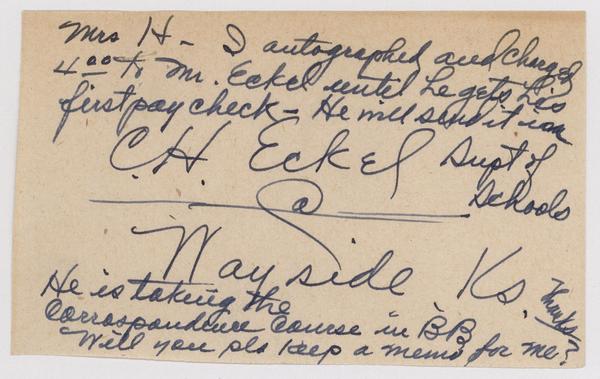 Mrs H - I autographed and charged
4.00 to Mr. Eckel until he gets his
first pay check - He will send it in
C.H. Eckel Supt of
Schools
@
Wayside Ks.
He is taking the
Correspondence Course in BB
Will you pls keep a memo for me?
Thanks